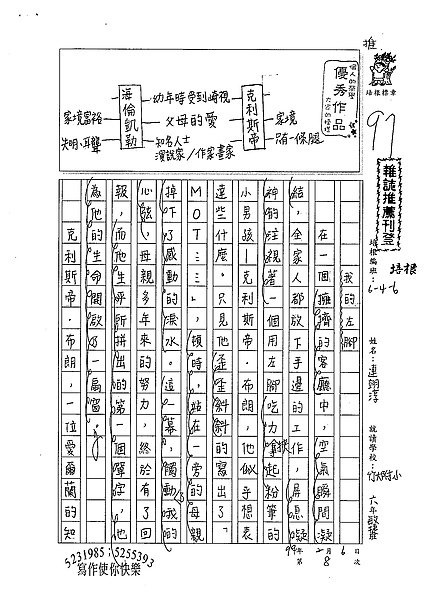 推
培根標章
個人的榮譽
大家的榜樣
優秀作品
97
雜誌推薦刊登
海倫凱勒
克利斯帝
幼年時受到歧視
父母的愛
知名人士
演說家/作家畫家
家境富裕
失明、耳聾
家境
只有一條腿
培根編班:培根6-4-6
姓名:連翊淳
就讀學校:竹大附小 六年
99年2月6日
第8次
我的左腳
在一個擁擠的客廳中,空氣瞬間凝
結,全家人都放下手邊的工作,屏息凝
神的注視著一個用左腳吃力拿起粉筆的
小男孩—克利斯帝.布朗,他似乎想表
達些什麼。只見他歪歪斜斜的寫出了「
MOT……,頓時,站在一旁的母親
掉下了感動的淚水。這一幕,觸動了我的
心弦,母親多年來的努力,終於有了回
報,而他生平所拼出的第一個單字,也
為他的生命開啟了一扇窗。
克利斯帝.布朗,一位愛爾蘭的知
5231985;5255393
寫作使你快樂